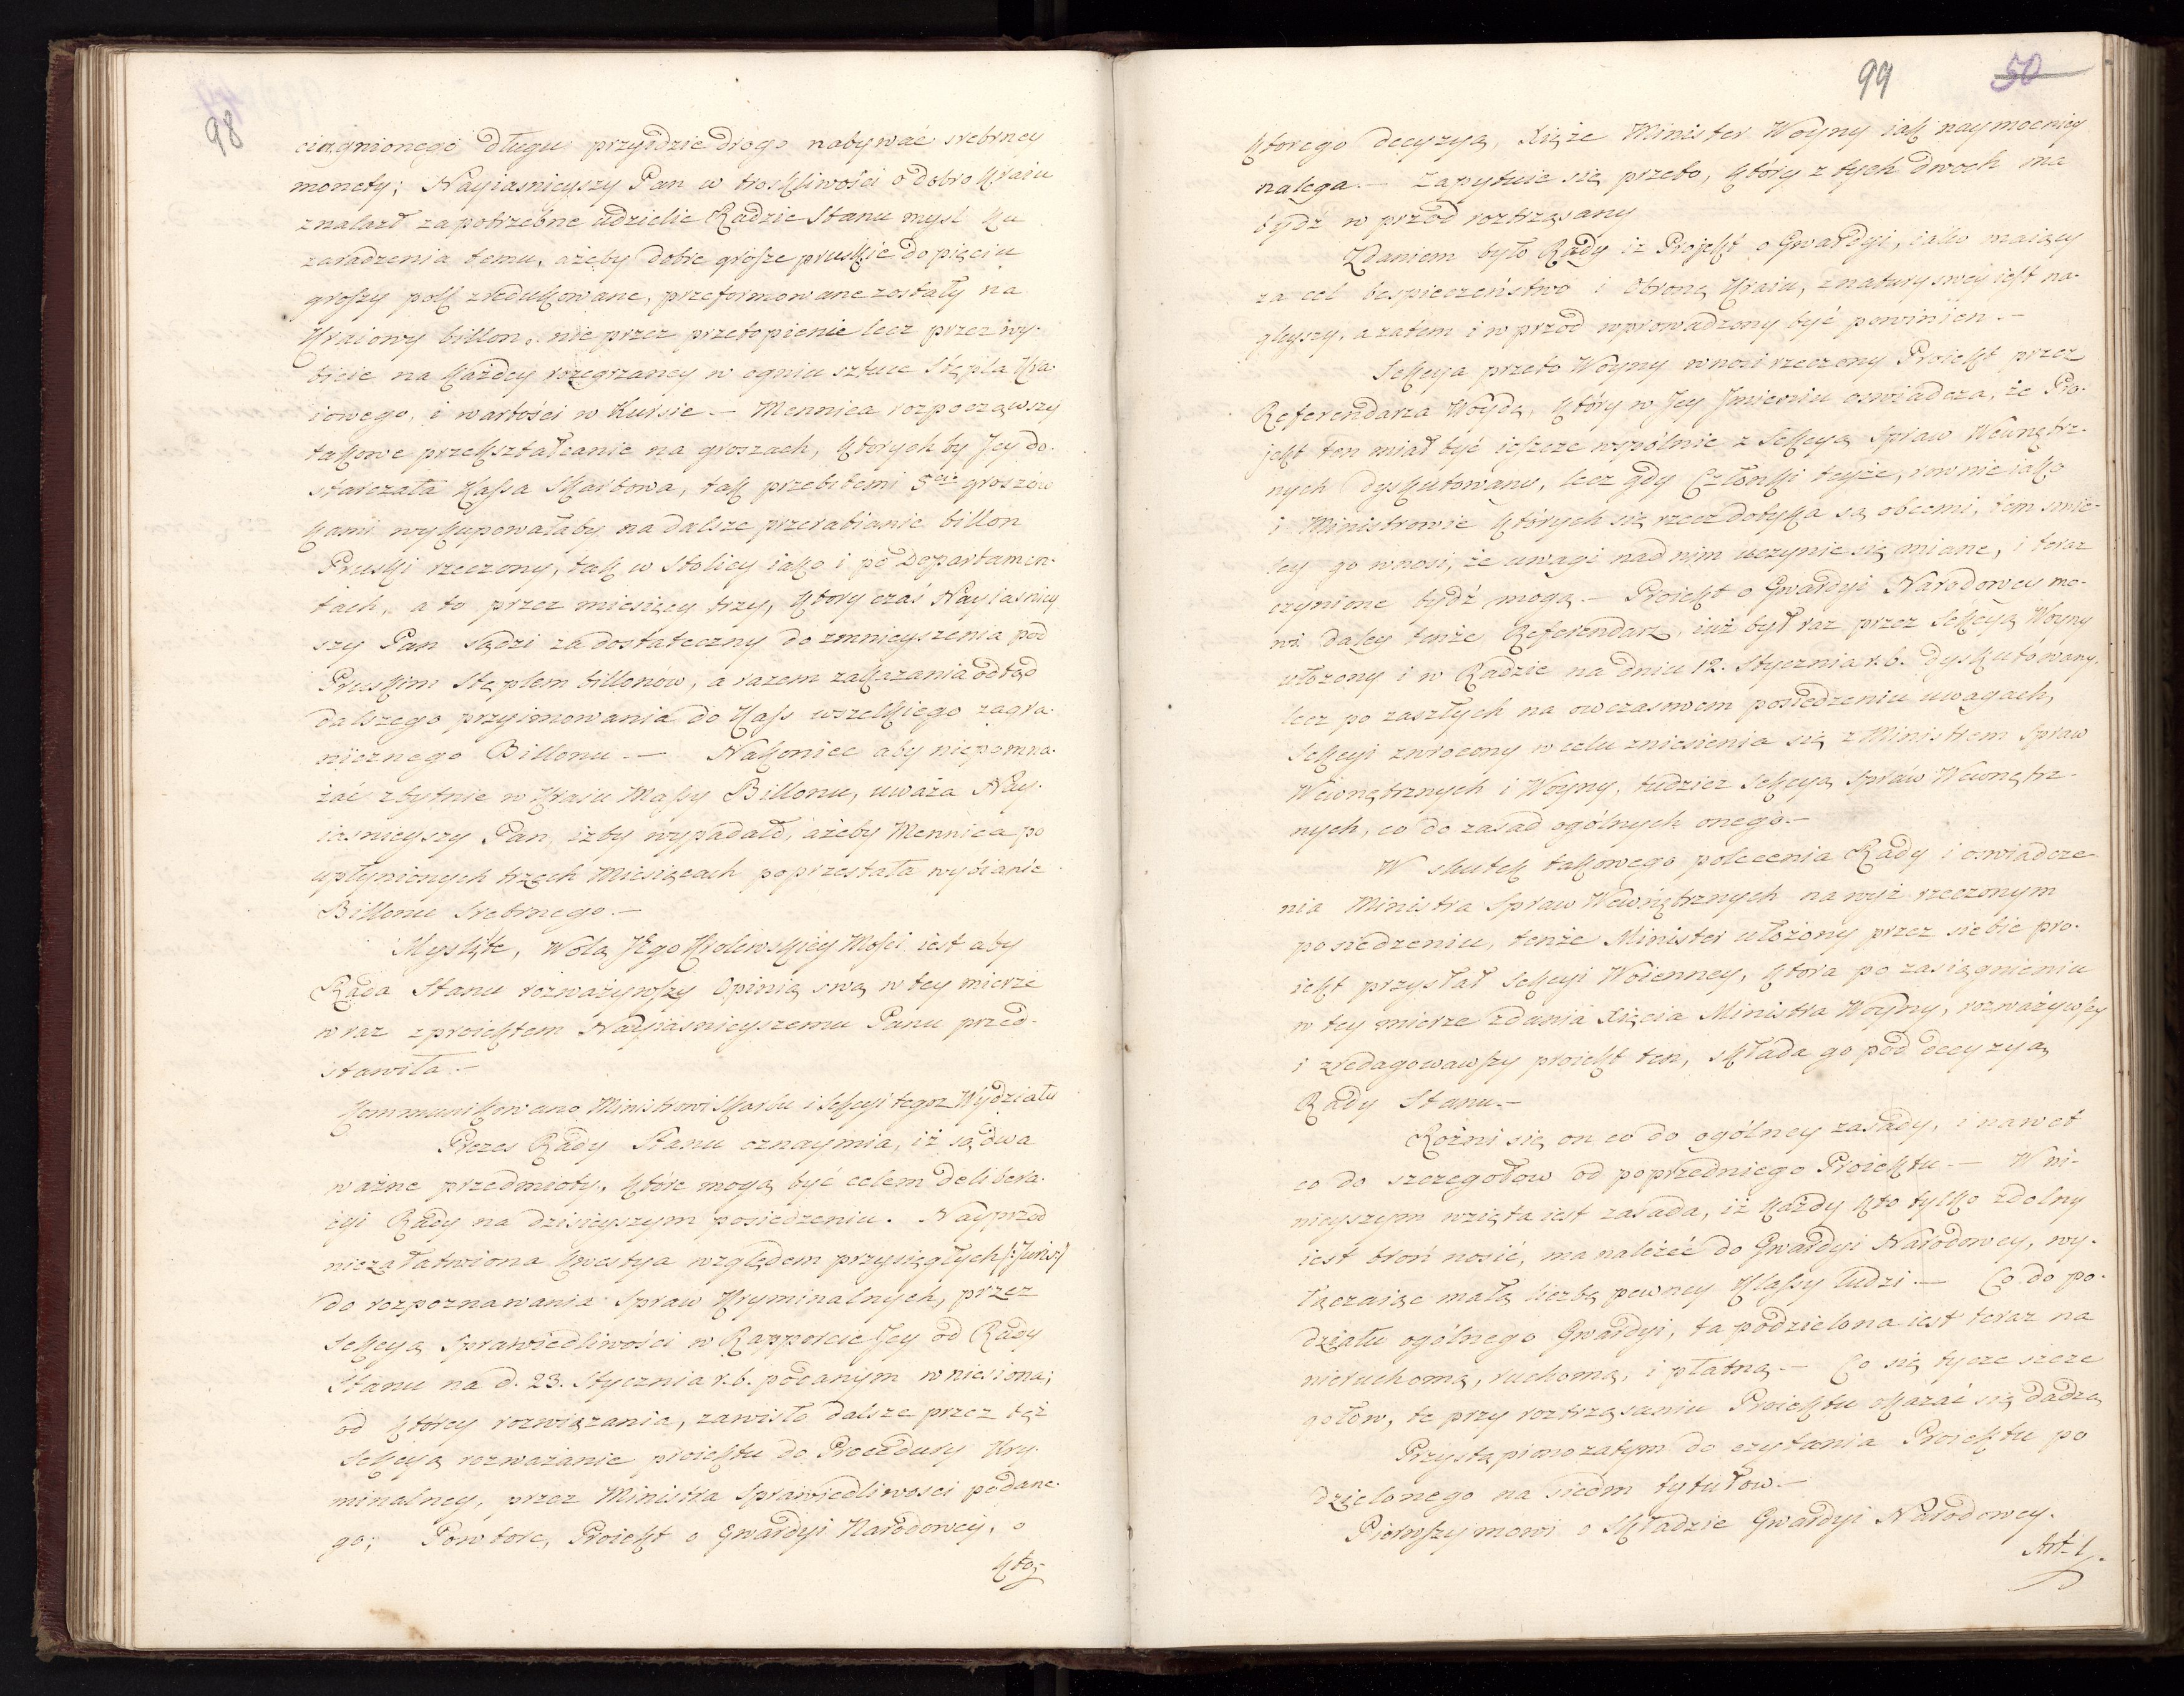 98
ciągnionego długu przyidzie drogo nabywać srebrney
monety; Nayiasnieyszy Pan w troskliwości o dobro Kraiu
znalazł za potrzebne udzielić Radzie Stanu mysl ku
zaradzenia temu, ażeby dobre grosze pruskie do pięciu
groszy polk zredukowane, przeformowane zostały na
Kraiowy billon, nie przez przetopienie lecz przez wy-
bicie na każdey rozegrzaney w ogniu sztuce Stępla Kra-
iowego, i wartości w Kursie. — Mennica rozpocząwszy
takowe przekształcanie na groszach, których by Jey do-
starczała Kassa Skarbowa, tak przebitemi 5cio groszów
kami wykupowałaby na dalsze przerabianie billon
Pruski rzeczony, tak w Stolicy iako i po Departamen-
tach, a to przez miesięcy trzy, który czas Nayiasniey
szy Pan sądzi za dostateczny do zmnieyszenia pod
Pruskim Stęplem billonów, a razem zakazania odtąd
dalszego przyimowania do Kass wszelkiego zagra-
nicznego Billonu. — Nakoniec aby niepomna-
żać zbytnie w Kraiu Massy Billonu, uważa Nay-
iasnieyszy Pan, iżby wypadało, ażeby Mennica po
upłynionych trzech Miesiącach poprzestała wybianie
Billonu Srebrnego. —
Myslą tę, Wolą Jego Krolewskiey Mości iest aby
Rada Stanu rozważywszy Opinią swą w tey mierze
wraz z proiektem Nayiasnieyszemu Panu przed-
stawiła. —
Kommunikowano Ministrowi Skarbu i Sekcyi tegoz Wydziału
Prezes Rady Stanu oznaymia, iż są dwa
ważne przedmioty, które mogą być celem delibera-
cyi Rady na dzisieyszym posiedzeniu. Nayprzód
niezałatwiona kwestya względem przysięgłych /:Juris:/
do rozpoznawania Spraw Kryminalnych, przez
Sekcyą Sprawiedliwości w Rapporcie Jey od Rady
Stanu na d. 23. Stycznia r. b. podanym wniesiona;
od którey rozwiązania, zawisło dalsze przez też
Sekcyą rozważanie proiektu do Procedury Kry-
minalney, przez Ministra Sprawiedliwosci podane-
go; Powtore, Proiekt o Gwardyi Narodowey, o
któ-
99 50
ktorego decyzyą, Xiąże Minister Woyny iak naymocniey
nalega. — Zapytuie się przeto, który z tych dwoch ma
bydź w przód roztrząsany
Zdaniem było Rady iż Projekt o Gwardyi, iako maiący
za cel bespieczeństwo i Obronę Kraiu, z natury swey iest na-
glejszy, a zatem i w przód wprowadzony być powinien. —
Sekcya przeto Woyny wnosi rzeczony Proiekt przez
Referendarza Woydę, który w Jey Jmieniu oswiadcza, że Pro-
jekt ten miał być ieszcze wspólnie z Sekcyą Spraw Wewnętrz-
nych dyskutowany, lecz gdy Członki teyże, rownie iako
i Ministrowie których się rzecz dotyka są obecni, tem smie-
ley go wnosi, że uwagi nad nim uczynić się miane, i teraz
czynione bydź mogą. — Proiekt o Gwardyi Narodowey mo-
wi daley tenże Referendarz, iuż był raz przez Sekcyą Woyny
ułożony i w Radzie na dniu 12. Stycznia r. b. dyskutowany,
lecz po zaszłych na owczasowem posiedzeniu uwagach,
Sekcyi zwrócony w celu zniesienia się z Ministrem Spraw
Wewnętrznych i Woyny, tudziez Sekcyą Spraw Wewnętrz-
nych, co do zasad ogólnych onego. —
W skutek takowego polecenia Rady i oswiadcze-
nia Ministra Spraw Wewnętrznych na wyż rzeczonym
posiedzeniu, tenże Minister ułożony przez siebie pro-
iekt przysłał Sekcyi Woienney, która po zasiągnieniu
w tey mierze zdania Xięcia Ministra Woyny, rozważywszy
i zredagowawszy proiekt ten, składa go pod decyzyą
Rady Stanu. —
Rożni się on co do ogólney zasady, i nawet
co do szczegołow od poprzedniego Proiektu. — W ni-
nieyszym wzięta iest zasada, iż każdy kto tylko zdolny
iest broń nosić, ma należeć do Gwardyi Narodowey, wy-
łączaiąc małą liczbę pewney Klassy ludzi. — Co do po-
działu ogólnego Gwardyi, ta podzielona iest teraz na
nieruchomą, ruchomą, i płatną. — Co się tycze szcze
gołow, te przy roztrząsaniu Proiektu okazać się dadzą
Przystąpiono zatym do czytania Proiektu po
dzielonego na siedm tytułow. —
Pierwszy mowi o składzie Gwardyi Narodowey.
Art. 1.